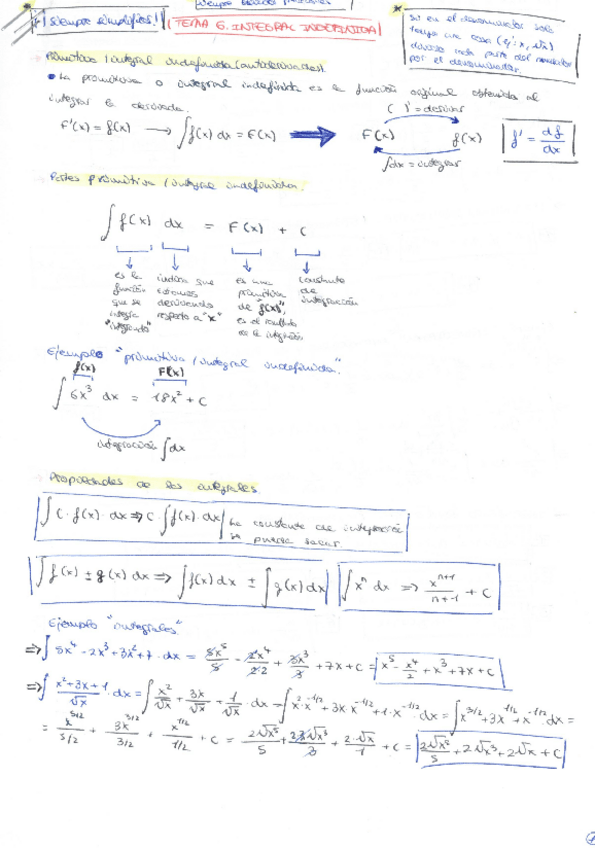 ¡Siempre simplificar!
TEMA 6. INTEGRAL INDEFINIDA
* Si en el denominador solo
tengo una cosa (ej: x, √x)
divido cada parte del numerador
por el denominador.
Primitiva / integral indefinida (antiderivadas).
• La primitiva o integral indefinida es la función original obtenida al
integrar la derivada.
( )' = derivar
F'(x) = f(x) → ∫f(x) dx = F(x) ⇒ F(x) f(x) f' = df/dx
∫dx = integrar
Partes primitiva / integral indefinida.
∫ f(x) dx = F(x) + C
es la función que se integra "integrando"
indica que estamos derivando respecto a "x"
es una primitiva de "f(x)", es el resultado de la integración
constante de integración
Ejemplo "primitiva / integral indefinida".
f(x) F(x)
∫ 6x³ dx = 18x² + C
integración ∫dx
Propiedades de las integrales.
∫ C · f(x) · dx ⇒ C · ∫ f(x) · dx La constante de integración
se puede sacar.
∫ f(x) ± g(x) dx ⇒ ∫ f(x) dx ± ∫ g(x) dx ∫ xⁿ dx ⇒ xⁿ⁺¹/n+1 + C
Ejemplo "integrales"
⇒ ∫ 5x⁴ - 2x³ + 3x² + 7 · dx = 5x⁵/5 - 2x⁴/2·2 + 3x³/3 + 7x + C = x⁵ - x⁴/2 + x³ + 7x + C
⇒ ∫ x²+3x+1/√x · dx = ∫ x²/√x + 3x/√x + 1/√x · dx = ∫ x²·x^-1/2 + 3x·x^-1/2 + 1·x^-1/2 dx = ∫ x^3/2 + 3x^1/2 + x^-1/2 · dx =
= x^5/2/5/2 + 3x^3/2/3/2 + x^1/2/1/2 + C = 2√x⁵/5 + 2·3√x³/3 + 2·√x/1 + C = 2√x⁵/5 + 2√x³ + 2√x + C